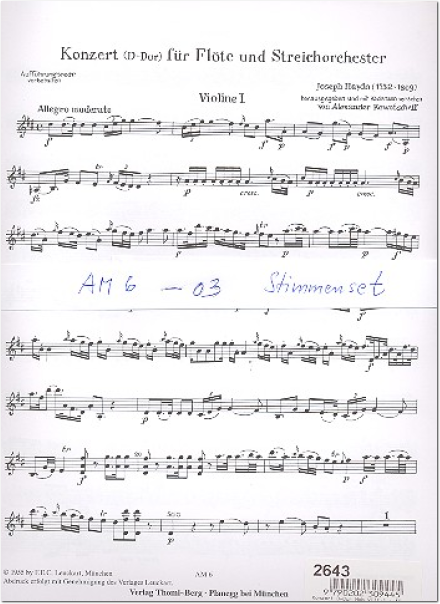 Konzert (D-Dur) für Flöte und Streichorchester
Aufführungsrecht
vorbehalten
Joseph Haydn (1732-1809)
Violine I
herausgegeben und mit Kadenzen versehen
von Alexander Kowatscheff
Allegro moderato
tr
cresc.
cresc.
AM 6 - 03 Stimmenset
tr
tr
Solo
1
© 1955 by F.E.C. Leuckart, München
Abdruck erfolgt mit Genehmigung des Verlages Leuckart.
AM 6
Verlag Thomi-Berg - Planegg bei München
2643
9790202309445